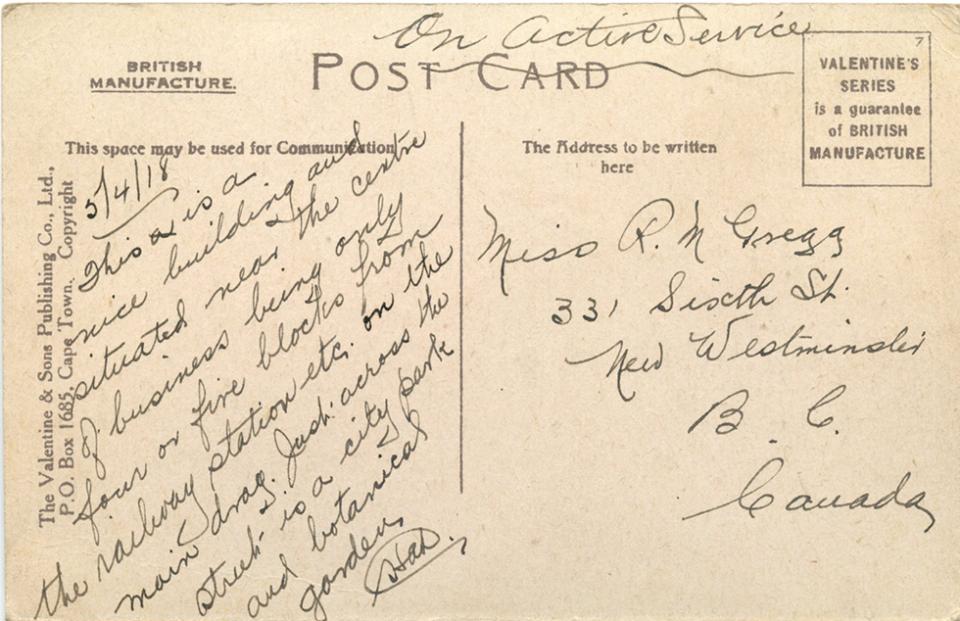 On Active Service
BRITISH
MANUFACTURE.
POST CARD
VALENTINE'S
SERIES
is a guarantee
of BRITISH
MANUFACTURE
7
This space may be used for Communication
The Address to be written
here
The Valentine & Sons Publishing Co., Ltd.,
P.O. Box 1685, Cape Town. Copyright
5/4/18
This is a
nice building and
situated near the centre
of business being only
four or five blocks from
the railway station etc. on the
main drag. Just across the
street is a city park
and botanical
garden
Miss R. M Gregg
331 Sixth St.
New Westminster
B. C.
Canada